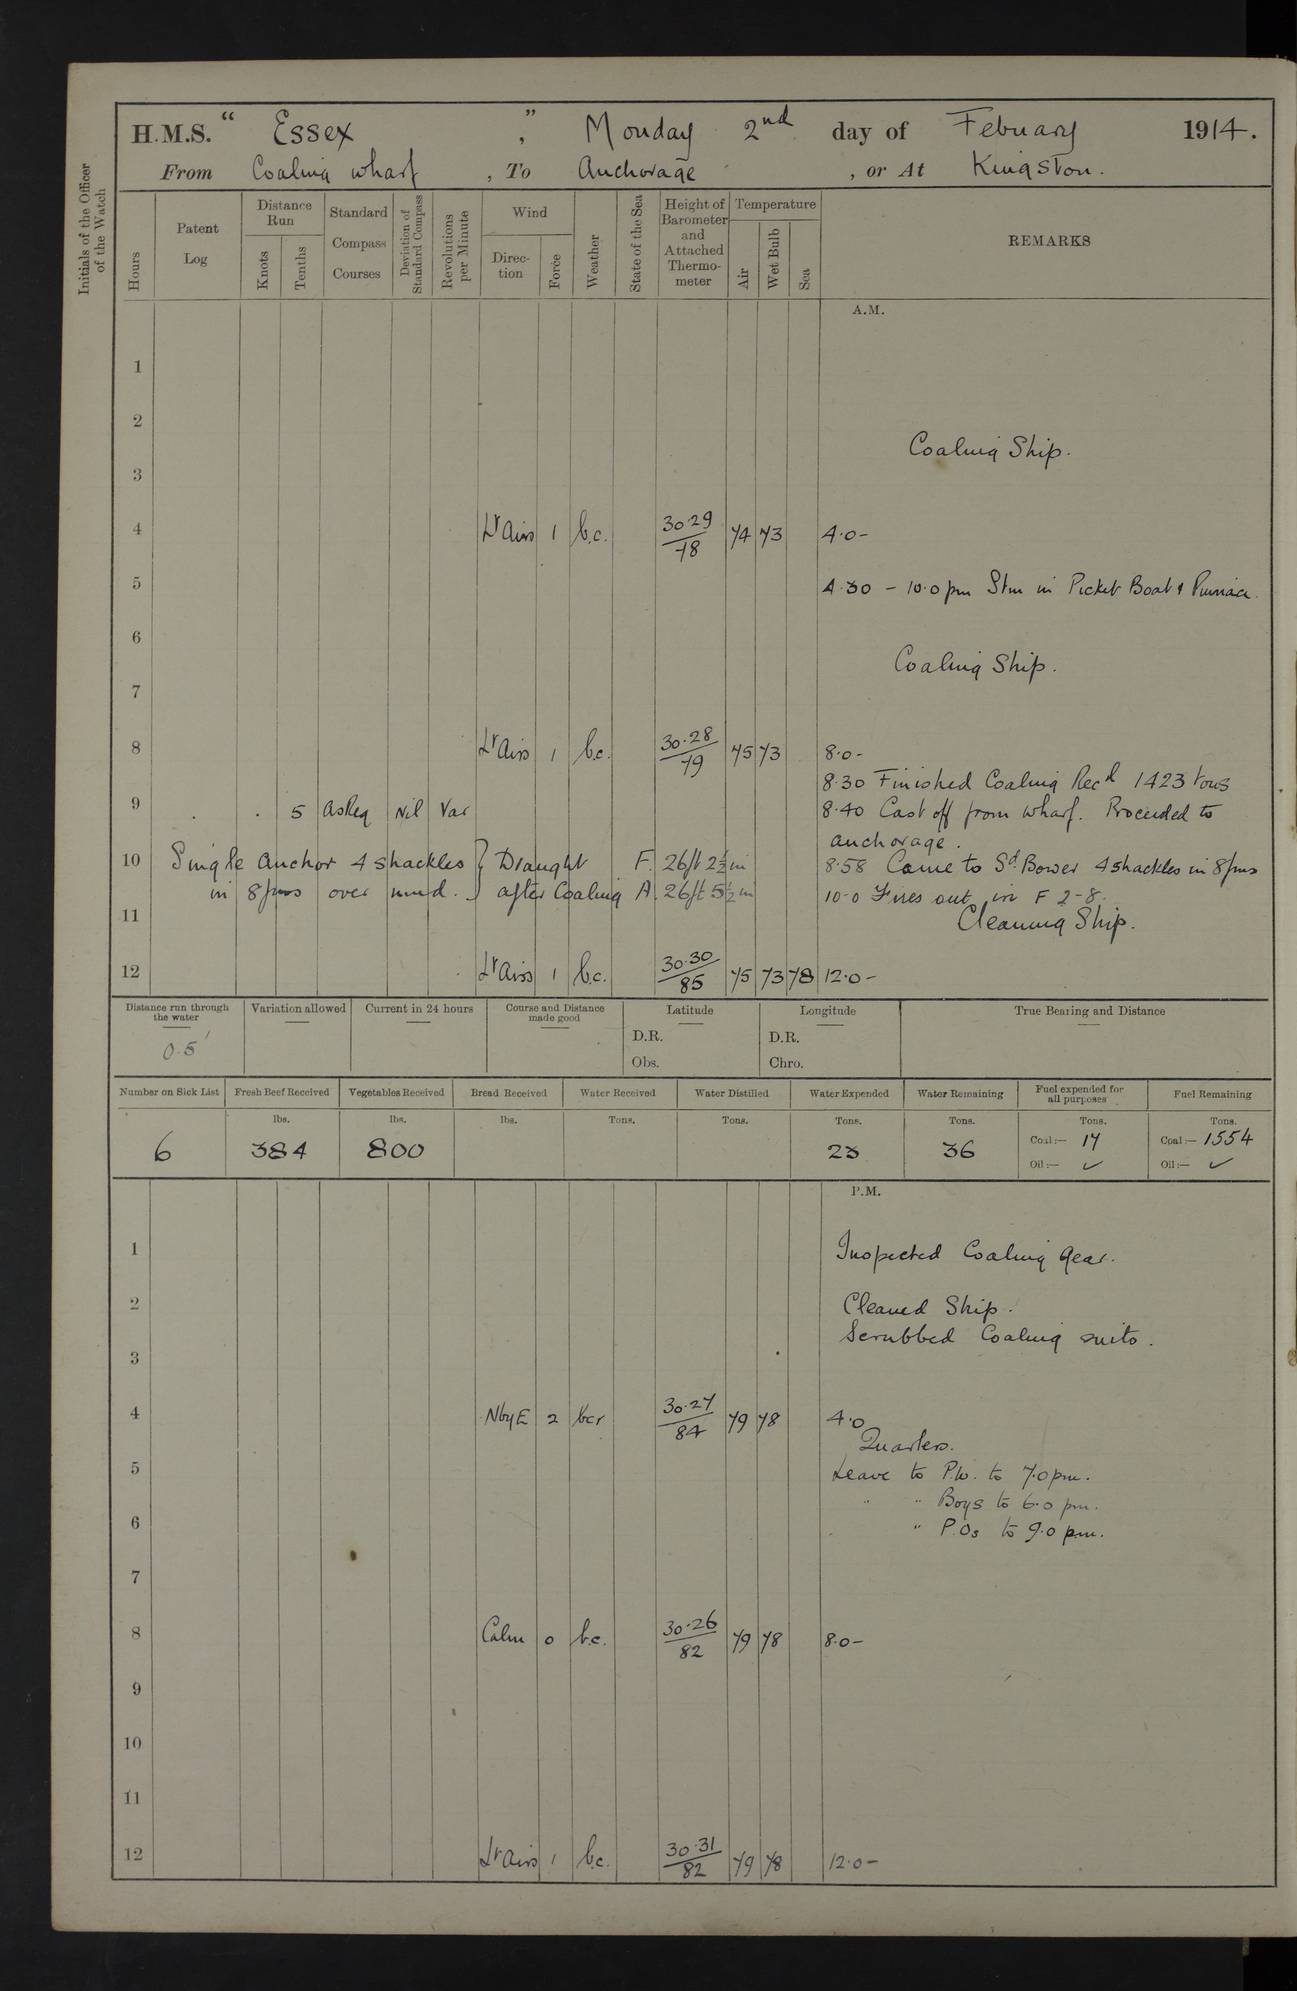 H.M.S. “ Essex ”, Monday 2nd day of Febuary 1914.
From Coaling wharf, To Anchorage, or At Kingston.
Initials of the Officer of the Watch
Hours
Patent Log
Distance Run
Knots
Tenths
Standard Compass Courses
Deviation of Standard Compass
Revolutions per Minute
Wind
Direc-tion
Force
Weather
State of the Sea
Height of Barometer and Attached Thermo-meter
Temperature
Air
Wet Bulb
Sea
REMARKS
A.M.
1
2
Coaling Ship.
3
4 Lt Airs 1 b.c. 30.29 78 74 73 4.0-
5 4.30 - 10.0 pm Stm in Picket Boat & Pinnace.
6
Coaling Ship.
7
8 Lt Airs 1 b.c. 30.28 79 75 73 8.0-
8.30 Finished Coaling Recd 1423 tons
9 . . 5 asReq Nil Var 8.40 Cast off from wharf. Proceeded to
anchorage.
10 Single anchor 4 shackles } Draught F. 26ft 2½ in 8.58 Came to Sd. Bower 4 shackles in 8 fms
in 8 fms over mud. } after Coaling A. 26ft 5½ in 10-0 Fires out in F 2-8.
11 Cleaning Ship.
12 Lt Airs 1 b.c. 30.30 85 75 73 78 12.0-
Distance run through the water
Variation allowed
Current in 24 hours
Course and Distance made good
Latitude
Longitude
True Bearing and Distance
0.5'
D.R.
D.R.
Obs.
Chro.
Number on Sick List
Fresh Beef Received
Vegetables Received
Bread Received
Water Received
Water Distilled
Water Expended
Water Remaining
Fuel expended for all purposes
Fuel Remaining
lbs. lbs. lbs. Tons. Tons. Tons. Tons. Tons. Tons.
6 384 800 23 36 Coal:— 17 Coal:— 1554
Oil:— ✓ Oil:— ✓
P.M.
1 Inspected Coaling Gear.
2 Cleaned Ship.
Scrubbed Coaling suits.
3
4 NbyE 2 bcr 30.27 84 79 78 4.0
Quarters.
5 Leave to P.W. to 7.0 pm.
" " Boys to 6.0 pm.
6 " P.Os to 9.0 pm.
7
8 Calm 0 b.c. 30.26 82 79 78 8.0-
9
10
11
12 Lt Airs 1 b.c. 30.31 82 79 78 12.0-